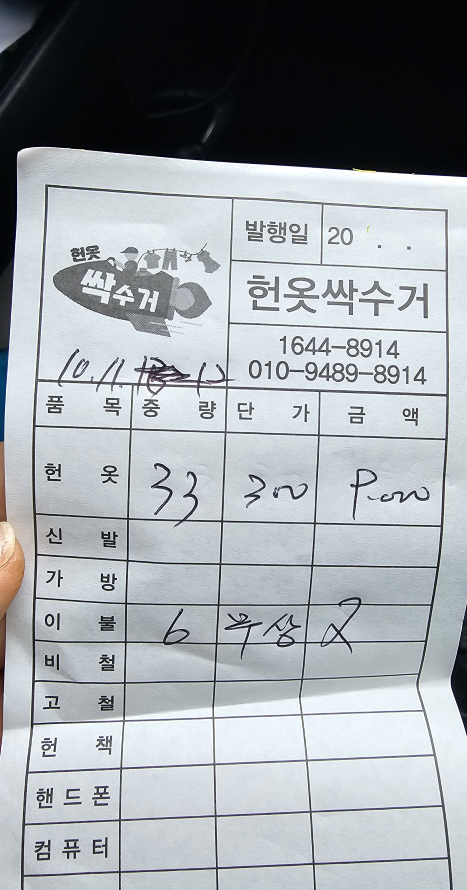 발행일 20 . .
헌옷
싹수거
헌옷싹수거
1644-8914
010-9489-8914
10.11. 12
품 목 중 량 단 가 금 액
헌 옷 33 300 9.000
신 발
가 방
이 불 6 무상
비 철
고 철
헌 책
핸드폰
컴퓨터